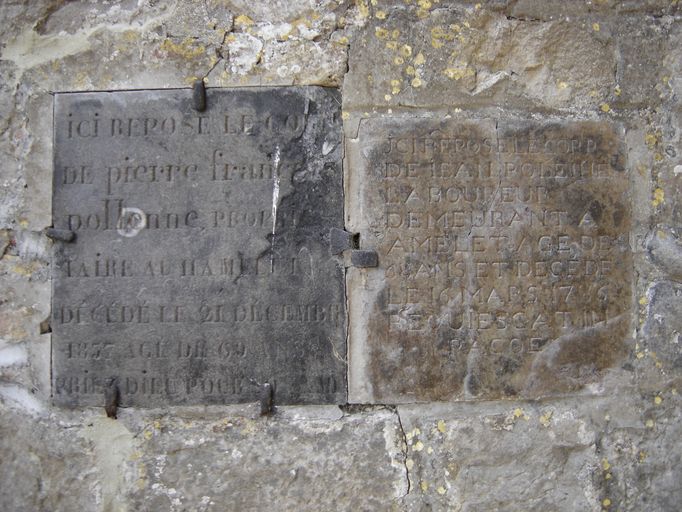 ICI REPOSE LE CO
DE pierre françois
pollonne, PROPRI
TAIRE AU HAMELET
DÉCÉDÉ LE 21 DÉCEMBR
1837 AGÉ DE 69
PRIEZ DIEU POUR
ICI REPOSE LE CORP
DE IEAN POLENNE
LABOUREUR
DEMEURANT A
AMELET AGE DE
ANS ET DECEDE
LE 16 MARS
REQUIESCAT IN
PACOE